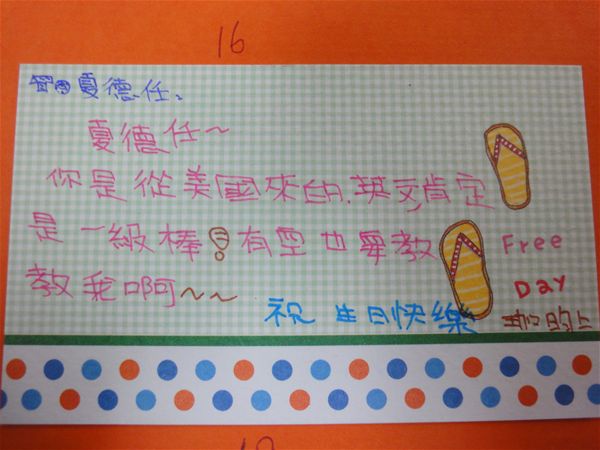 16
夏德任、
夏德任~
你是從美國來的.英文肯定
是一級棒!有空也要教
教我啊~~
Free
Day
祝 生日快樂